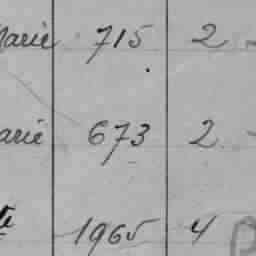 Marie 715 2 -
arie 673 2 -
te 1965 4